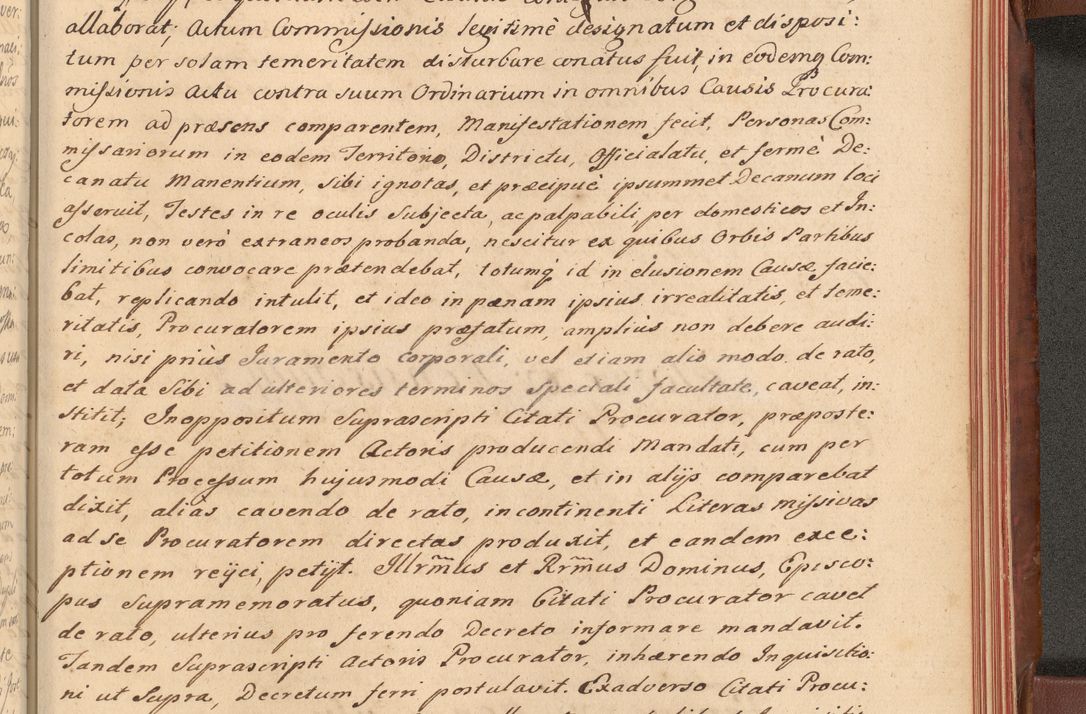 allaborat; Actum Commissionis legitimè designatum et disposi:
tum per solam temeritatem disturbare conatus fuit, in eodemq Com:
missionis Actu contra suum Ordinarium in omnibus Causis Procura:
torem ad præsens comparentem, Manifestationem fecit, Personas Com:
missariorum in eodem Territorio, Districtu, Officialatu, et fermè De:
canatu Manentium, sibi ignotas, et præcipuè ipsummet Decanum loci
asseruit, Testes in re oculis Subjecta, ac palpabili, per domesticos et In:
colas, non verò extraneos probanda, nescitur ex quibus Orbis Partibus
limitibus convocare prætendebat, totumq́ id in elusionem Causæ, facie:
bat, replicando intulit, et ideo in pænam ipsius irrealitatis, et teme:
ritatis, Procuratorem ipsius præfatum, ampliùs non debere audi:
ri, nisi priùs Juramento corporali, vel etiam alio modo de rato,
et data Sibi ad ulteriores terminos Speciali facultate, caveat, in:
stitit; In oppositum Suprascripti Citati Procurator, præposte:
ram esse petitionem Actoris producendi Mandati, cum per
totum Processum hujusmodi Causæ, et in alijs comparebat
dixit, aliàs cavendo de rato, in continenti Literas missivas
ad se Procuratorem directas produxit, et eandem exce:
ptionem reijci, petijt. Illrm̃us et Rrm̃us Dominus, Episco:
pus Supramemoratus, quoniam Citati Procurator cavet
de rato, ulterius pro ferendo Decreto informare mandavit.
Tandem Suprascripti Actoris Procurator, inhærendo Inquisitio:
ni ut Supra, Decretum ferri postulavit. Ex adverso Citati Procu: